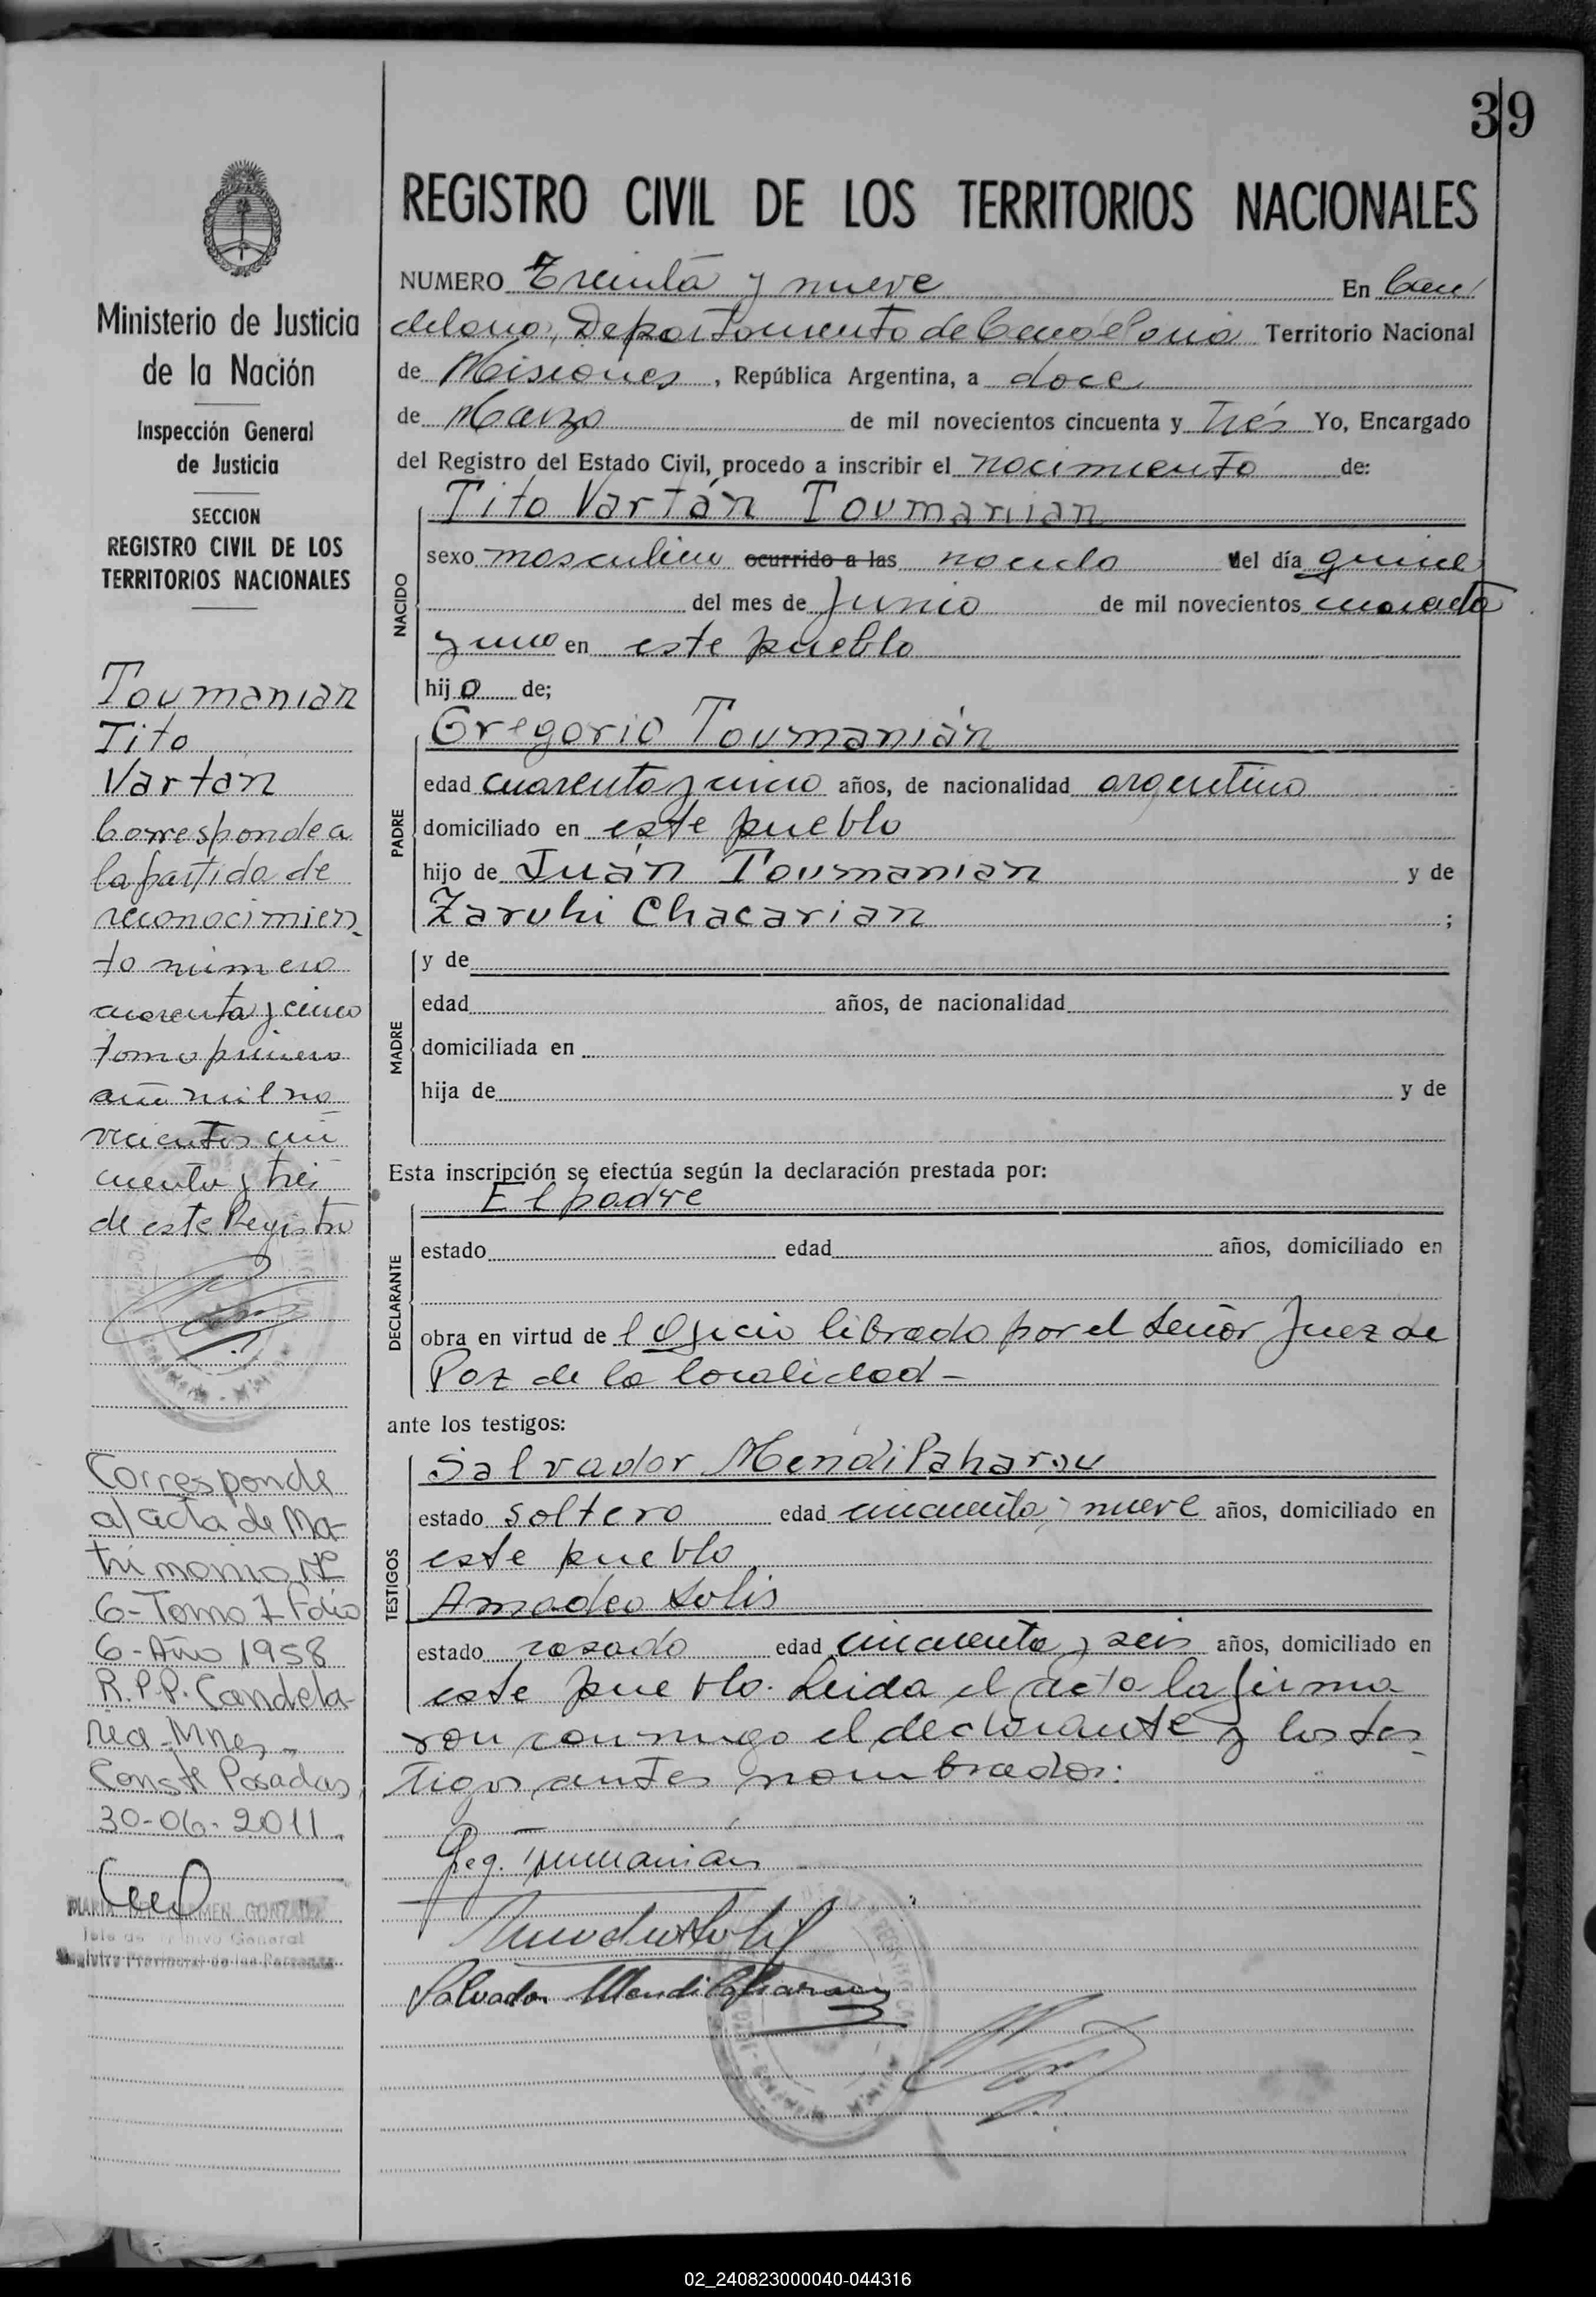 39
REGISTRO CIVIL DE LOS TERRITORIOS NACIONALES
NUMERO Treinta y nueve En Can
delaria, Departamento de Candelaria Territorio Nacional
de Misiones, República Argentina, a doce
de Marzo de mil novecientos cincuenta y trés Yo, Encargado
del Registro del Estado Civil, procedo a inscribir el nacimiento de:
Tito Vartán Toumanian
NACIDO
sexo masculino ocurrido a las nacido del día quince
del mes de Junio de mil novecientos cuarenta
y uno en este pueblo
hijo de;
PADRE
Gregorio Toumanián
edad cuarenta y uno años, de nacionalidad argentino
domiciliado en este pueblo
hijo de Juán Toumanian y de
Zaruhi Chacarian ;
MADRE
y de
edad años, de nacionalidad
domiciliada en
hija de y de
Esta inscripción se efectúa según la declaración prestada por:
DECLARANTE
El padre
estado edad años, domiciliado en
obra en virtud de l Oficio librado por el Señor Juez de
Paz de la localidad -
ante los testigos:
TESTIGOS
Salvador Mendilaharsu
estado soltero edad cincuenta y nueve años, domiciliado en
este pueblo
Amadeo Solis
estado casado edad cincuenta y seis años, domiciliado en
este pueblo. Leida el acta la firma
ron conmigo el declarante y los tes
tigos antes nombrados:
Greg. Toumanián
Salvador Mendilaharsu
Ministerio de Justicia
de la Nación
Inspección General
de Justicia
SECCION
REGISTRO CIVIL DE LOS
TERRITORIOS NACIONALES
Toumanian
Tito
Vartán
Corresponde a
la partida de
reconocimien
to número
cuarenta y cinco
tomo primero
año mil no
vecientos cin
cuenta y tres
de este Registro
Corresponde
al acta de Ma-
trimonio Nº
6-Tomo 1 Folio
6-Año 1958
R.P.P. Candela-
ria-Mnes-
Conste Posadas,
30-06-2011
General
Registro Provincial de las Personas
02_240823000040-044316